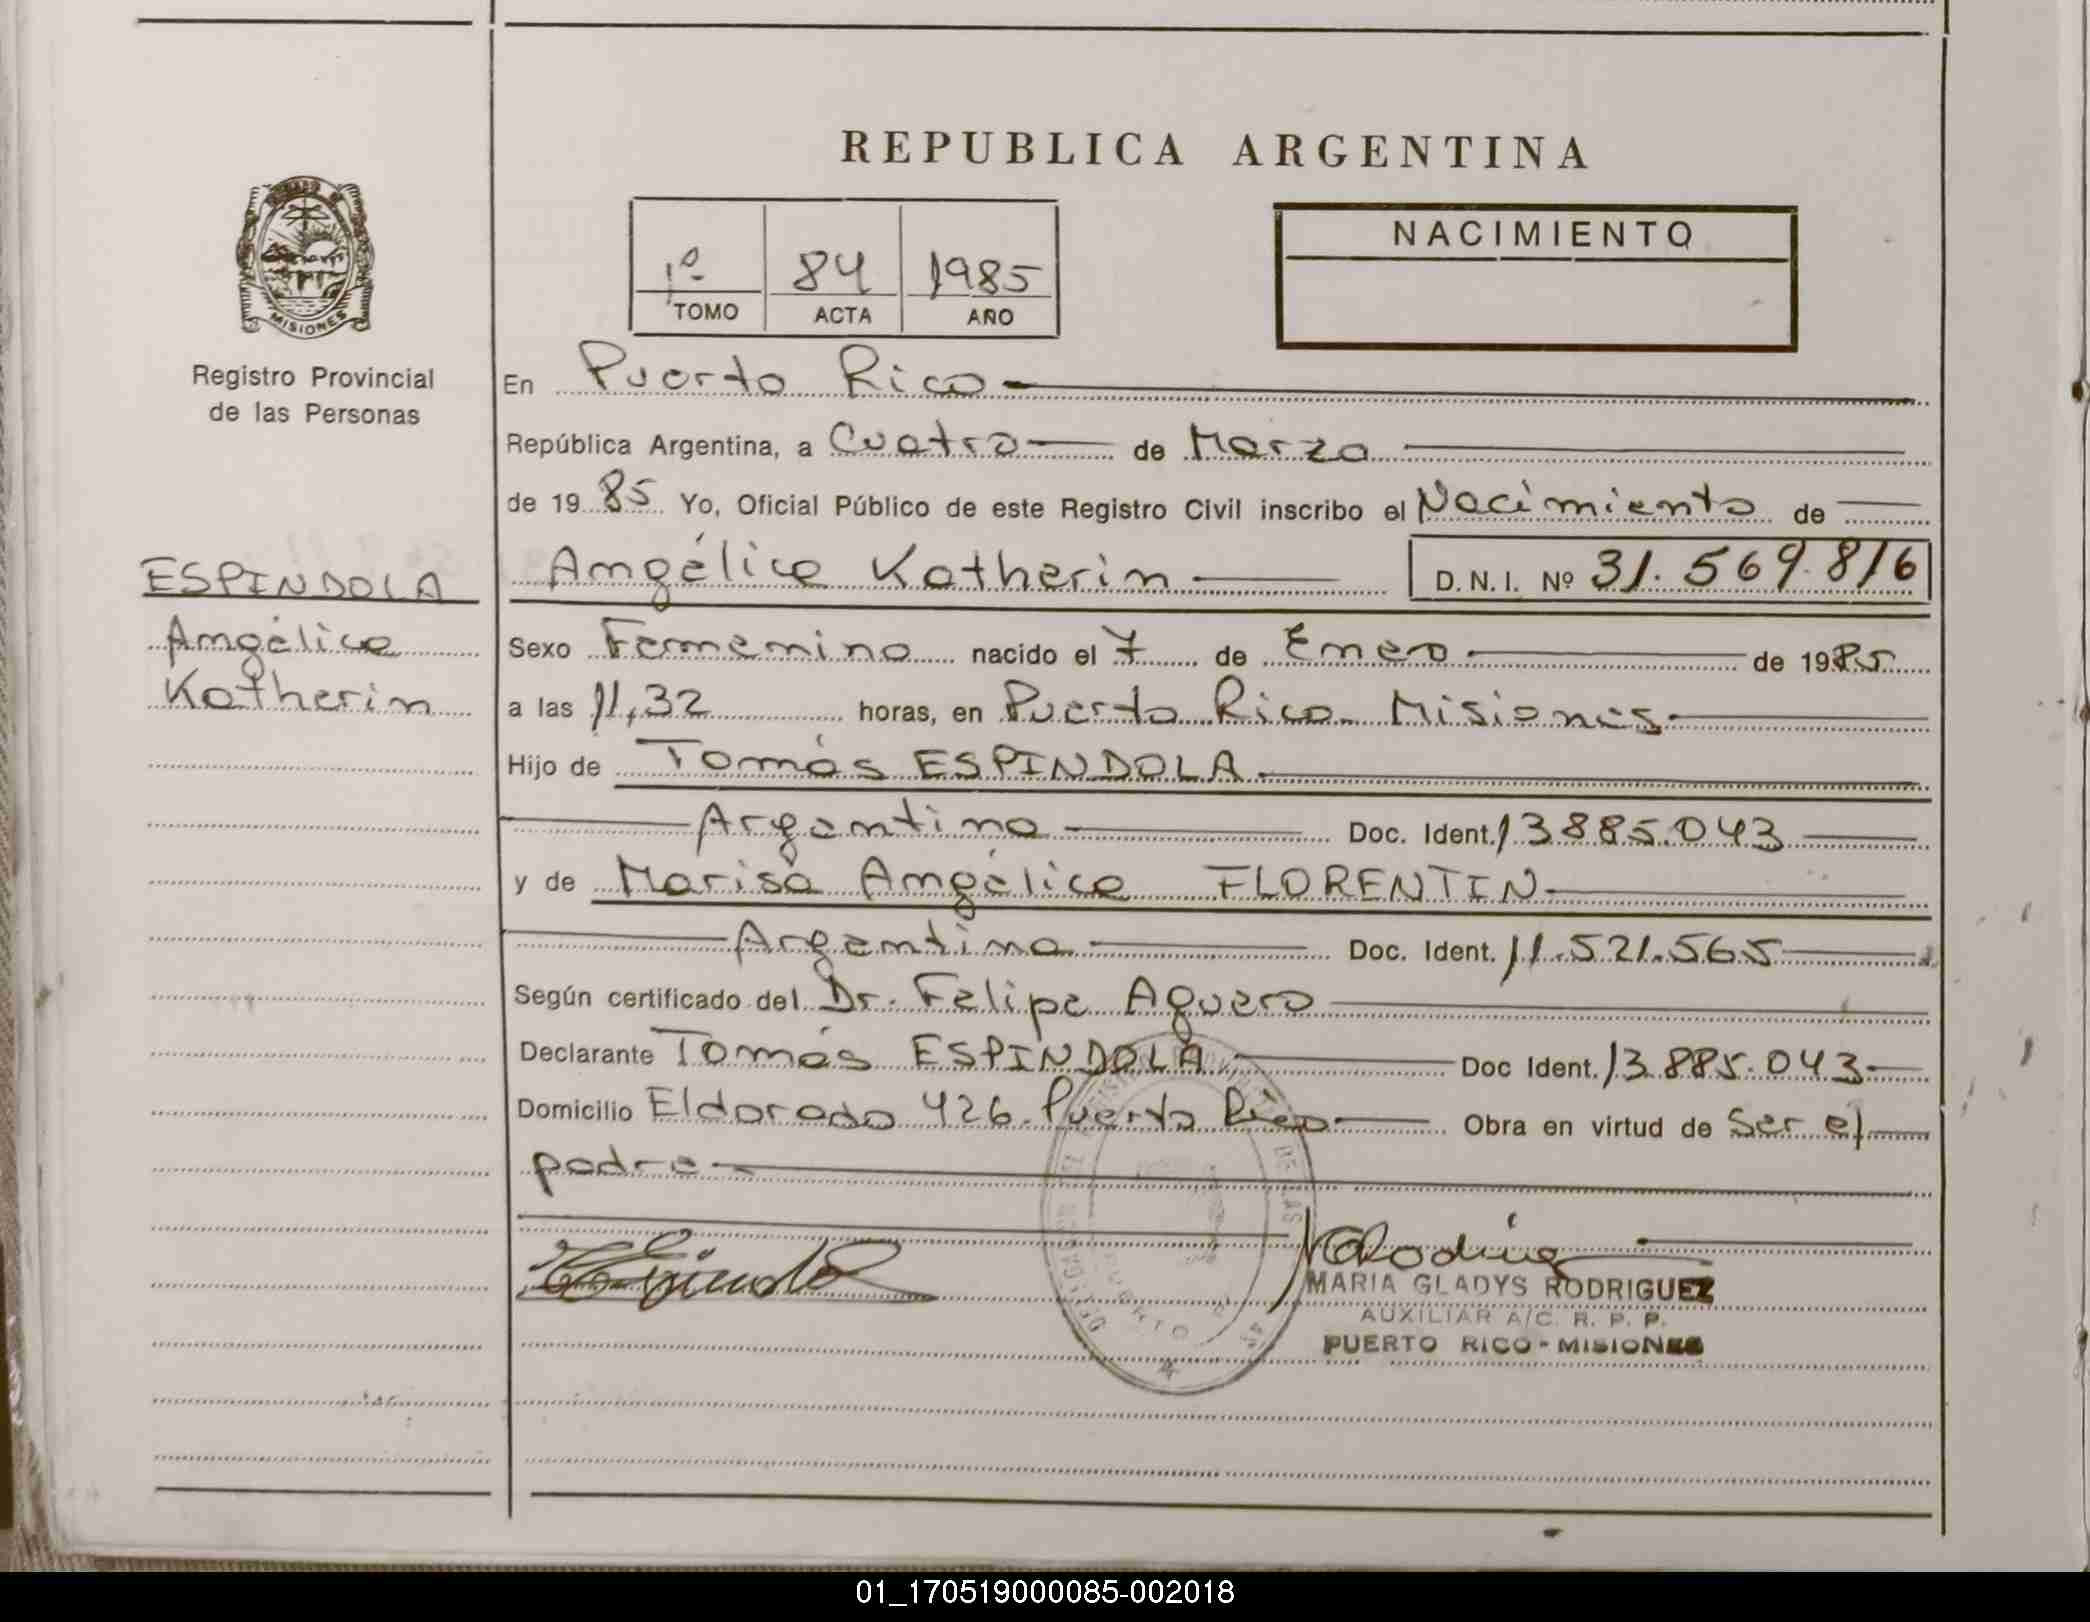 REPUBLICA ARGENTINA
1º 84 1985
TOMO ACTA AÑO
NACIMIENTO
MISIONES
Registro Provincial
de las Personas
ESPINDOLA
Angélica
Katherin
En Puerto Rico
República Argentina, a Cuatro de Marzo
de 1985 Yo, Oficial Público de este Registro Civil inscribo el Nacimiento de
Angélica Katherin D.N.I. Nº 31.569.816
Sexo Femenino nacido el 7 de Enero de 1985
a las 11,32 horas, en Puerto Rico Misiones
Hijo de Tomás ESPINDOLA
Argentino Doc. Ident. 13885.043
y de Marisa Angélica FLORENTIN
Argentina Doc. Ident. 11.521.565
Según certificado del Dr. Felipe Aguero
Declarante Tomás ESPINDOLA Doc Ident. 13885.043
Domicilio Eldorado 426. Puerto Rico Obra en virtud de Ser el
padre
MARIA GLADYS RODRIGUEZ
AUXILIAR A/C. R. P. P.
PUERTO RICO - MISIONES
01_170519000085-002018